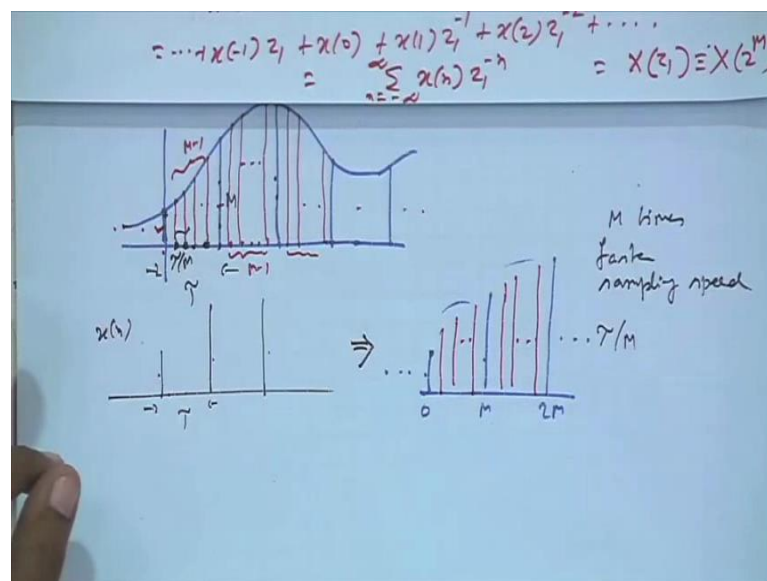 = ... + x(-1) z₁ + x(0) + x(1) z₁⁻¹ + x(2) z₁⁻² + ....
= ∑ x(n) z₁⁻ⁿ = X(z₁) ≡ X(z^M
∞
n=-∞
M-1
...
M
T/M
M-1
T
M times
faster
sampling speed
x(n)
⇒
... T/M
0 M 2M
T